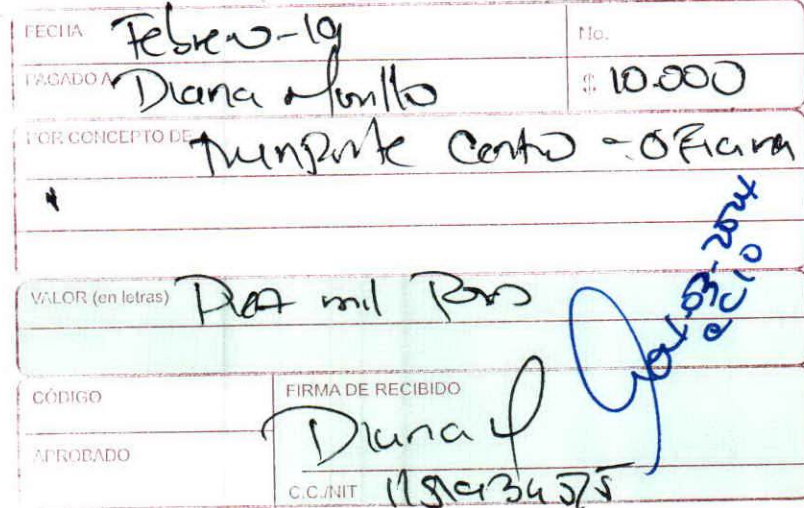 FECHA Febrero-19 No.
PAGADO A Diana Murillo $ 10.000
POR CONCEPTO DE Transporte Centro - Oficina
VALOR (en letras) Diez mil Pesos
CÓDIGO FIRMA DE RECIBIDO
Diana M
APROBADO
C.C./NIT